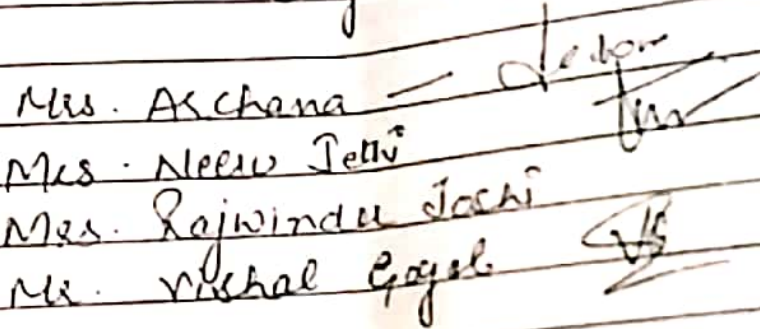 Mrs. Archana -
Mrs. Neeru Jethi
Mrs. Rajwinder Joshi
Mr. Vishal Goyal